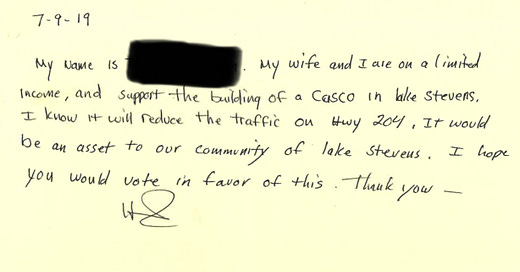 7-9-19
My Name is . My wife and I are on a limited
income, and support the building of a Casco in lake Stevens.
I know it will reduce the traffic on Hwy 204. It would
be an asset to our community of lake Stevens. I hope
you would vote in favor of this. Thank you —